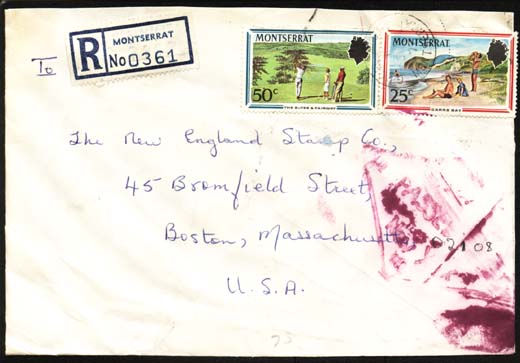 R MONTSERRAT
No0361
To
MONTSERRAT
50c
MONTSERRAT
25c
CARRS BAY
The New England Stamp Co.,
45 Bromfield Street,
Boston, Massachusetts 02108
U.S.A.
75